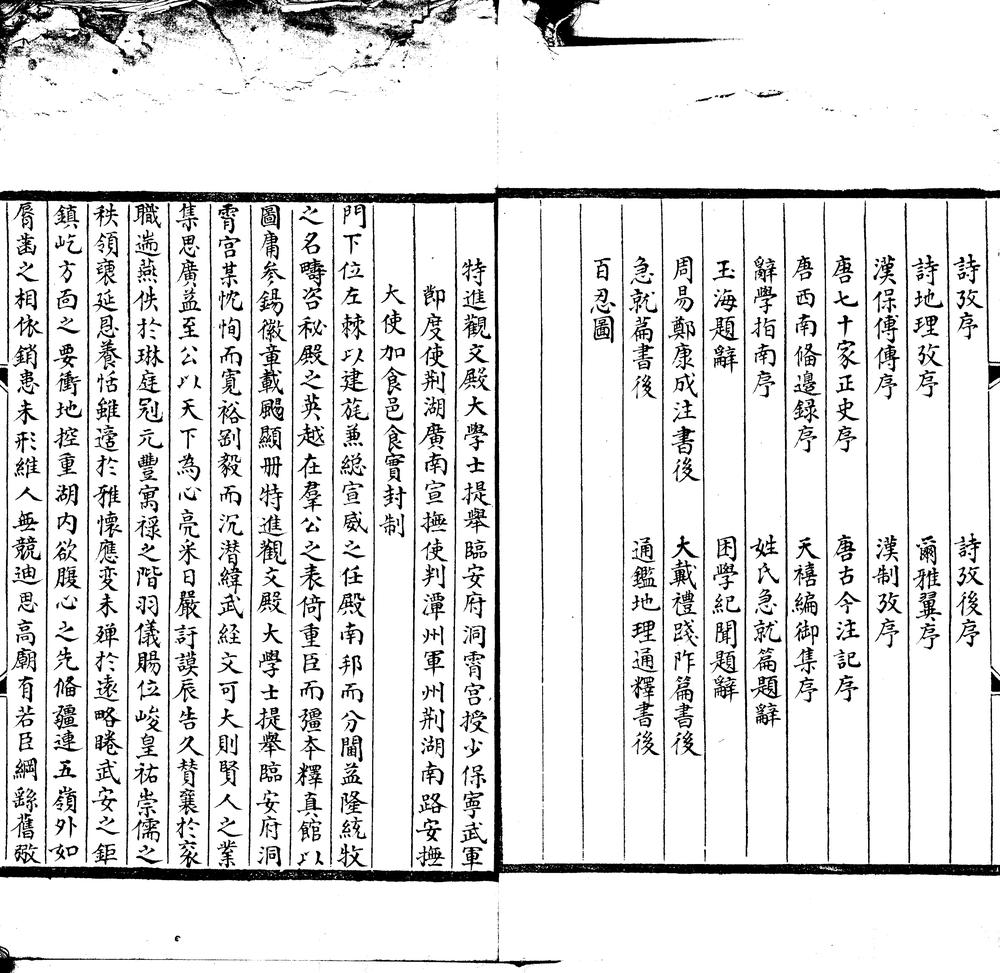 詩攷序　詩攷後序
詩地理攷序　爾雅翼序
漢保傅傳序　漢制攷序
唐七十家正史序　唐古今注記序
唐西南備邊録序　天禧編御集序
辭學指南序　姓氏急就篇題辭
玉海題辭　困學紀聞題辭
周易鄭康成注書後　大戴禮踐阼篇書後
急就篇書後　通鑑地理通釋書後
百忍圖
特進觀文殿大學士提舉臨安府洞霄宮授少保寧武軍
節度使荆湖廣南宣撫使判潭州軍州荆湖南路安撫
大使加食邑食實封制
門下位左棘以建旄兼總宣威之任殿南邦而分閫益隆統牧
之名疇咨秘殿之英越在羣公之表倚重臣而彊本釋真館以
圖庸參錫徽章載颺顯册特進觀文殿大學士提舉臨安府洞
霄宮某忱恂而寬裕剛毅而沉潛緯武經文可大則賢人之業
集思廣益至公以天下為心亮采日嚴訏謨辰告久賛襄於家
職遄燕佚於琳庭冠元豐寓禄之階羽儀賜位峻皇祐崇儒之
秩領袠延恩養恬雖適於雅懷應変未殫於遠略睠武安之鉅
鎮屹方面之要衝地控重湖内欲腹心之先備疆連五嶺外如
脣齒之相依銷患未形維人無競迪思高廟有若臣綱繇舊弼